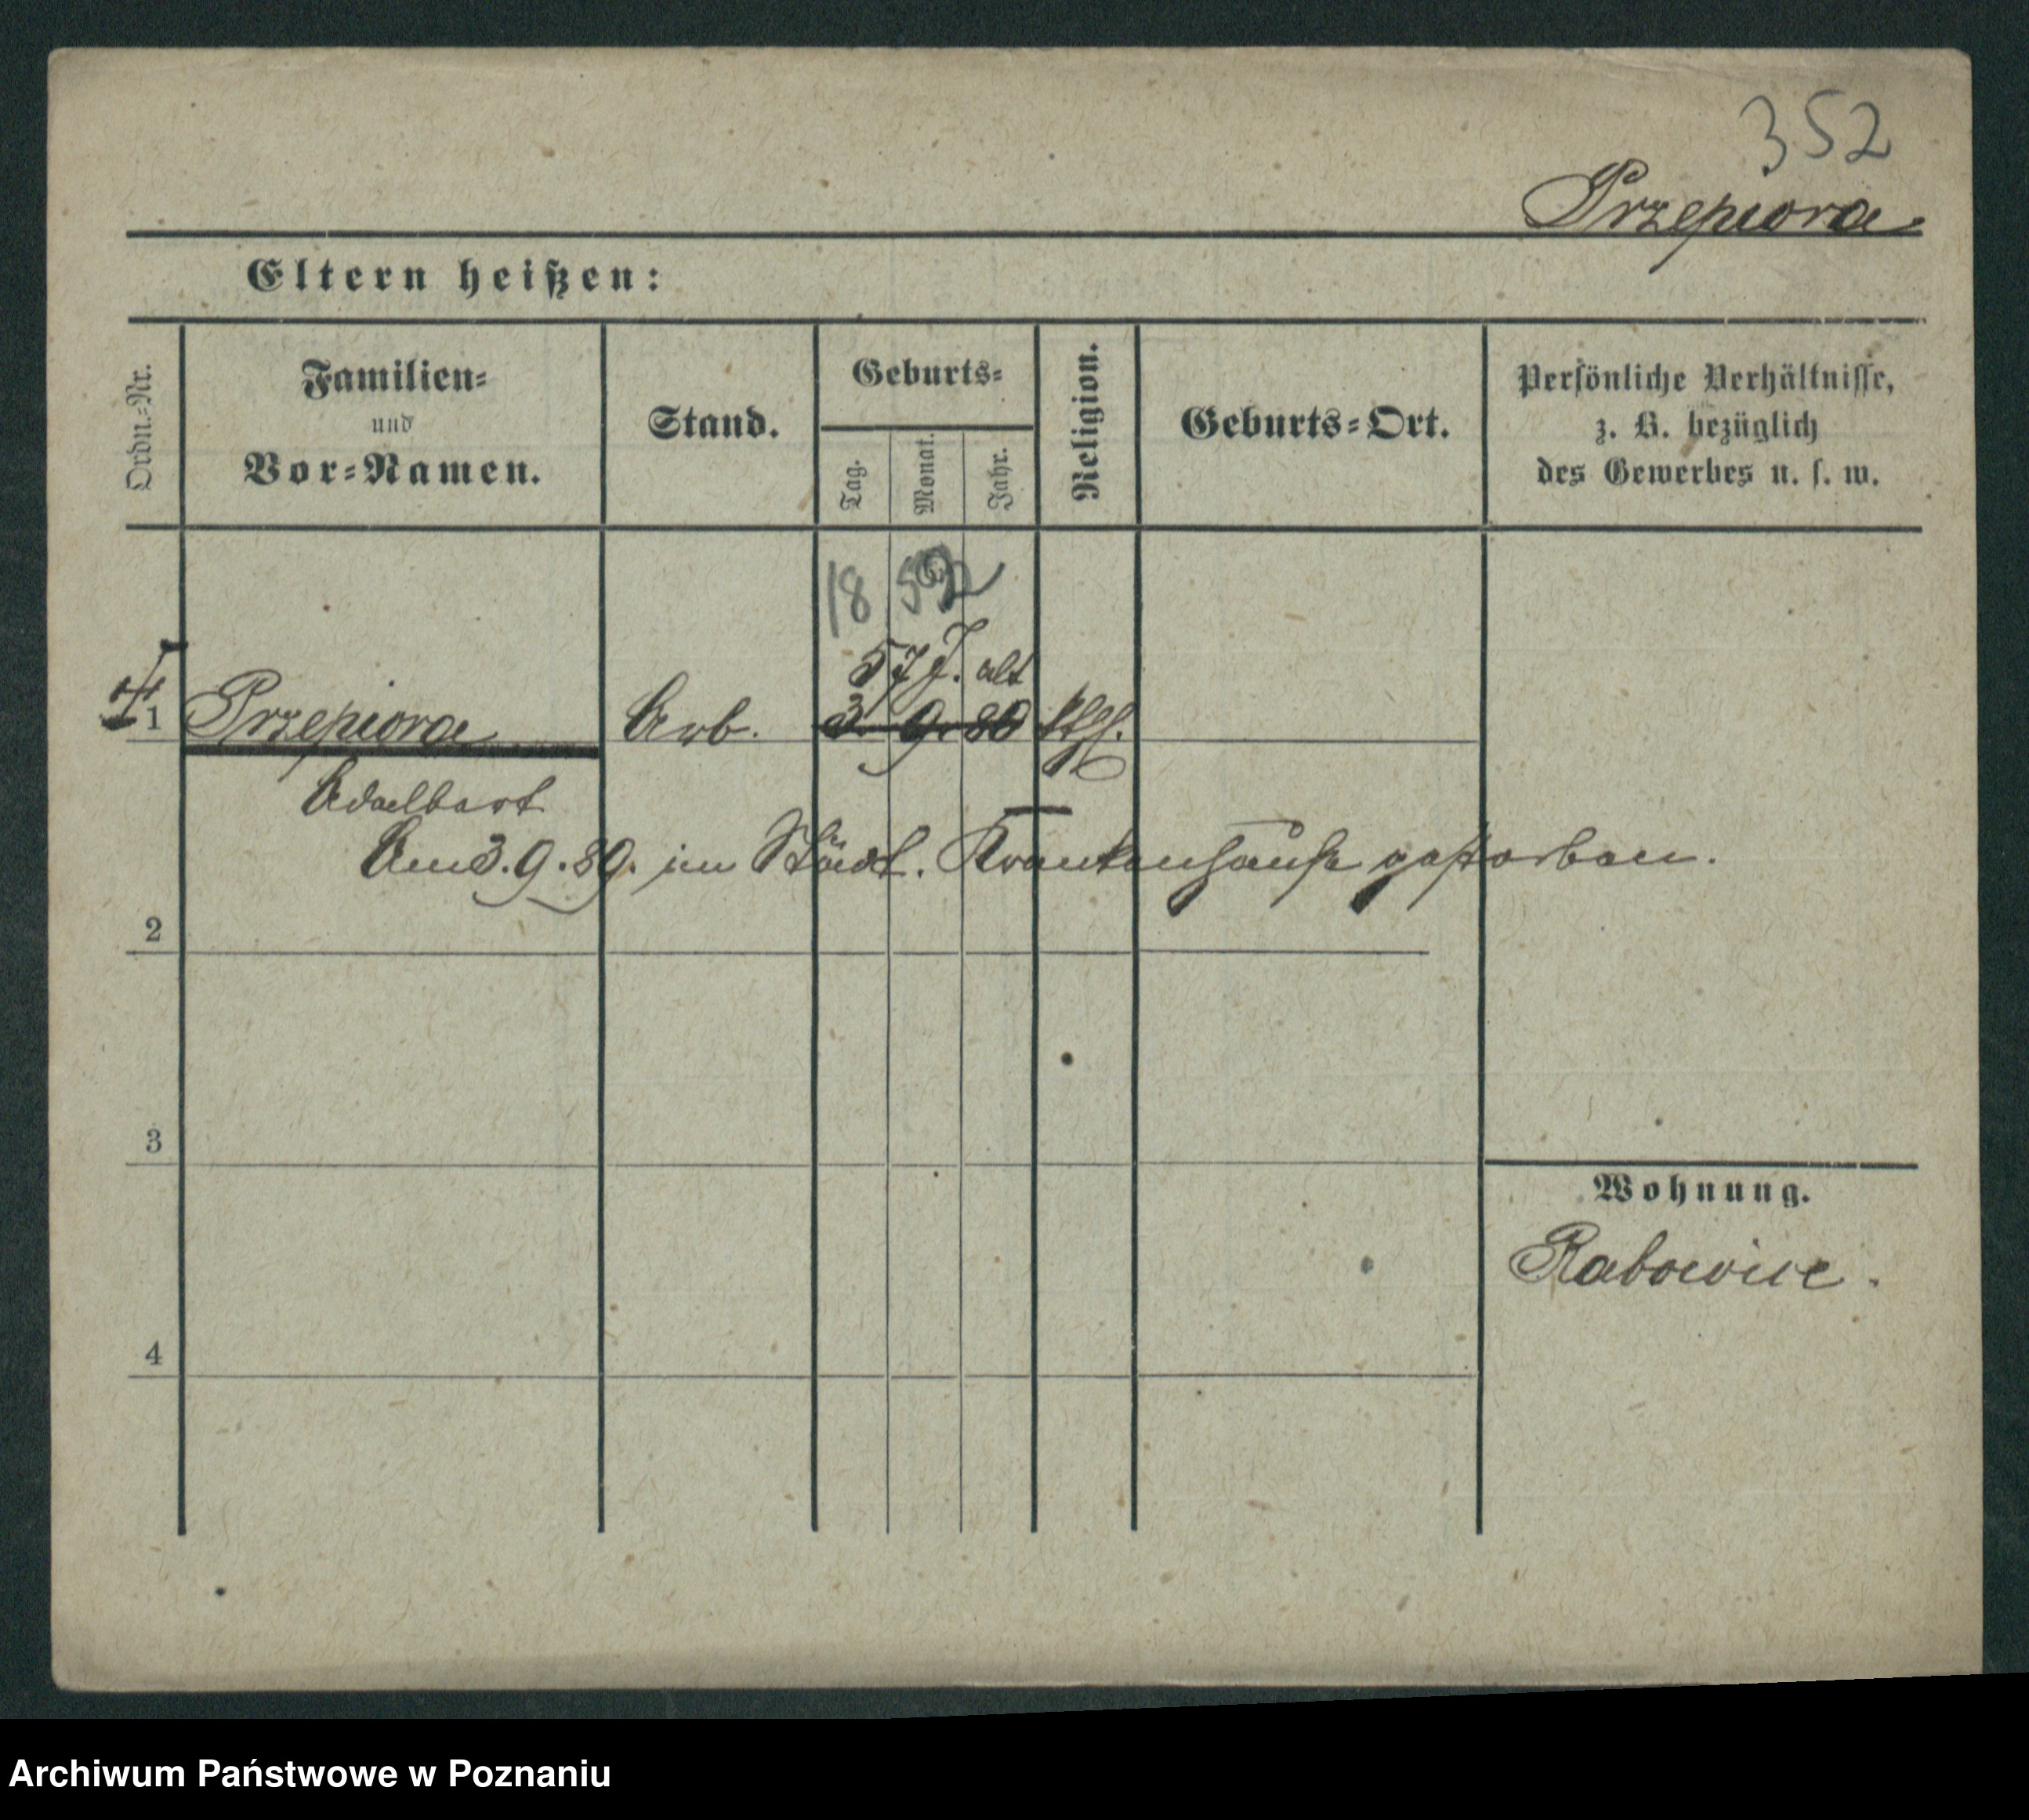 352
Przepiora
Eltern heißen:
Ordn.-Nr.
Familien-
und
Vor-Namen.
Stand.
Geburts-
Tag.
Monat.
Jahr.
Religion.
Geburts-Ort.
Persönliche Verhältnisse,
z. B. bezüglich
des Gewerbes u. s. w.
18
57 J. alt
1 Przepiora Arb. 3. 9. 89 kth.
Adalbert
Am 3.9.89. im Städt. Krankenhause gestorben.
2
3
Wohnung.
Rabowice.
4
Archiwum Państwowe w Poznaniu